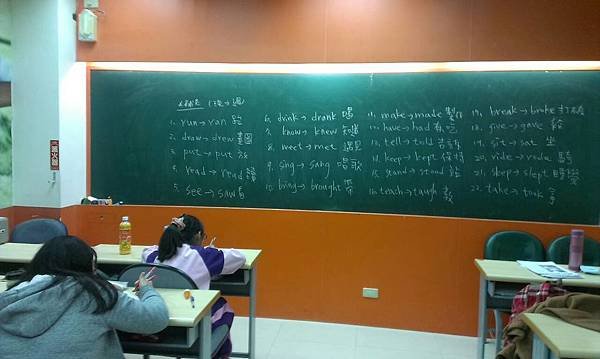 (現→過)
1. run→ran 跑
2. draw→drew 畫圖
3. put→put 放
4. read→read 讀
5. see→saw 看
6. drink→drank 喝
7. know→knew 知道
8. meet→met 遇見
9. sing→sang 唱歌
10. bring→brought 帶
make→made 製作
have→had 有,吃
tell→told 告訴
keep→kept 保持
stand→stood 站
teach→taugh 教
break→broke 打破
give→gave 給
19. sit→sat 坐
20. ride→rode 騎
21. sleep→slept 睡覺
22. take→took 拿
滅火器